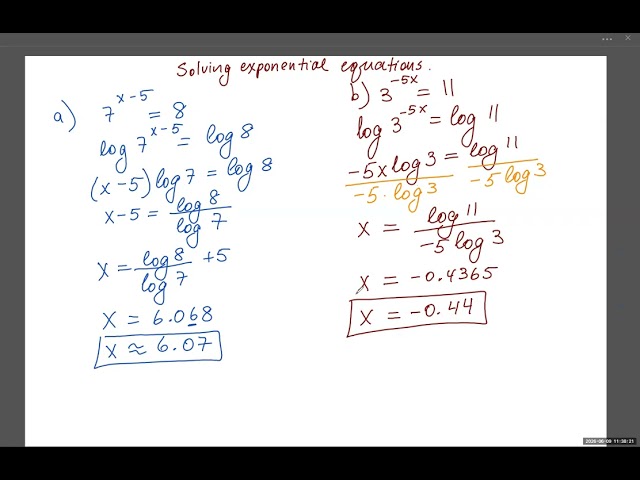 Solving exponential equations.
a) 7^{x-5} = 8
log 7^{x-5} = log 8
(x-5) log 7 = log 8
x-5 = log 8 / log 7
x = log 8 / log 7 + 5
x = 6.068
x ≈ 6.07
b) 3^{-5x} = 11
log 3^{-5x} = log 11
-5x log 3 = log 11
-5 · log 3 -5 log 3
x = log 11 / -5 log 3
x = -0.4365
x = -0.44